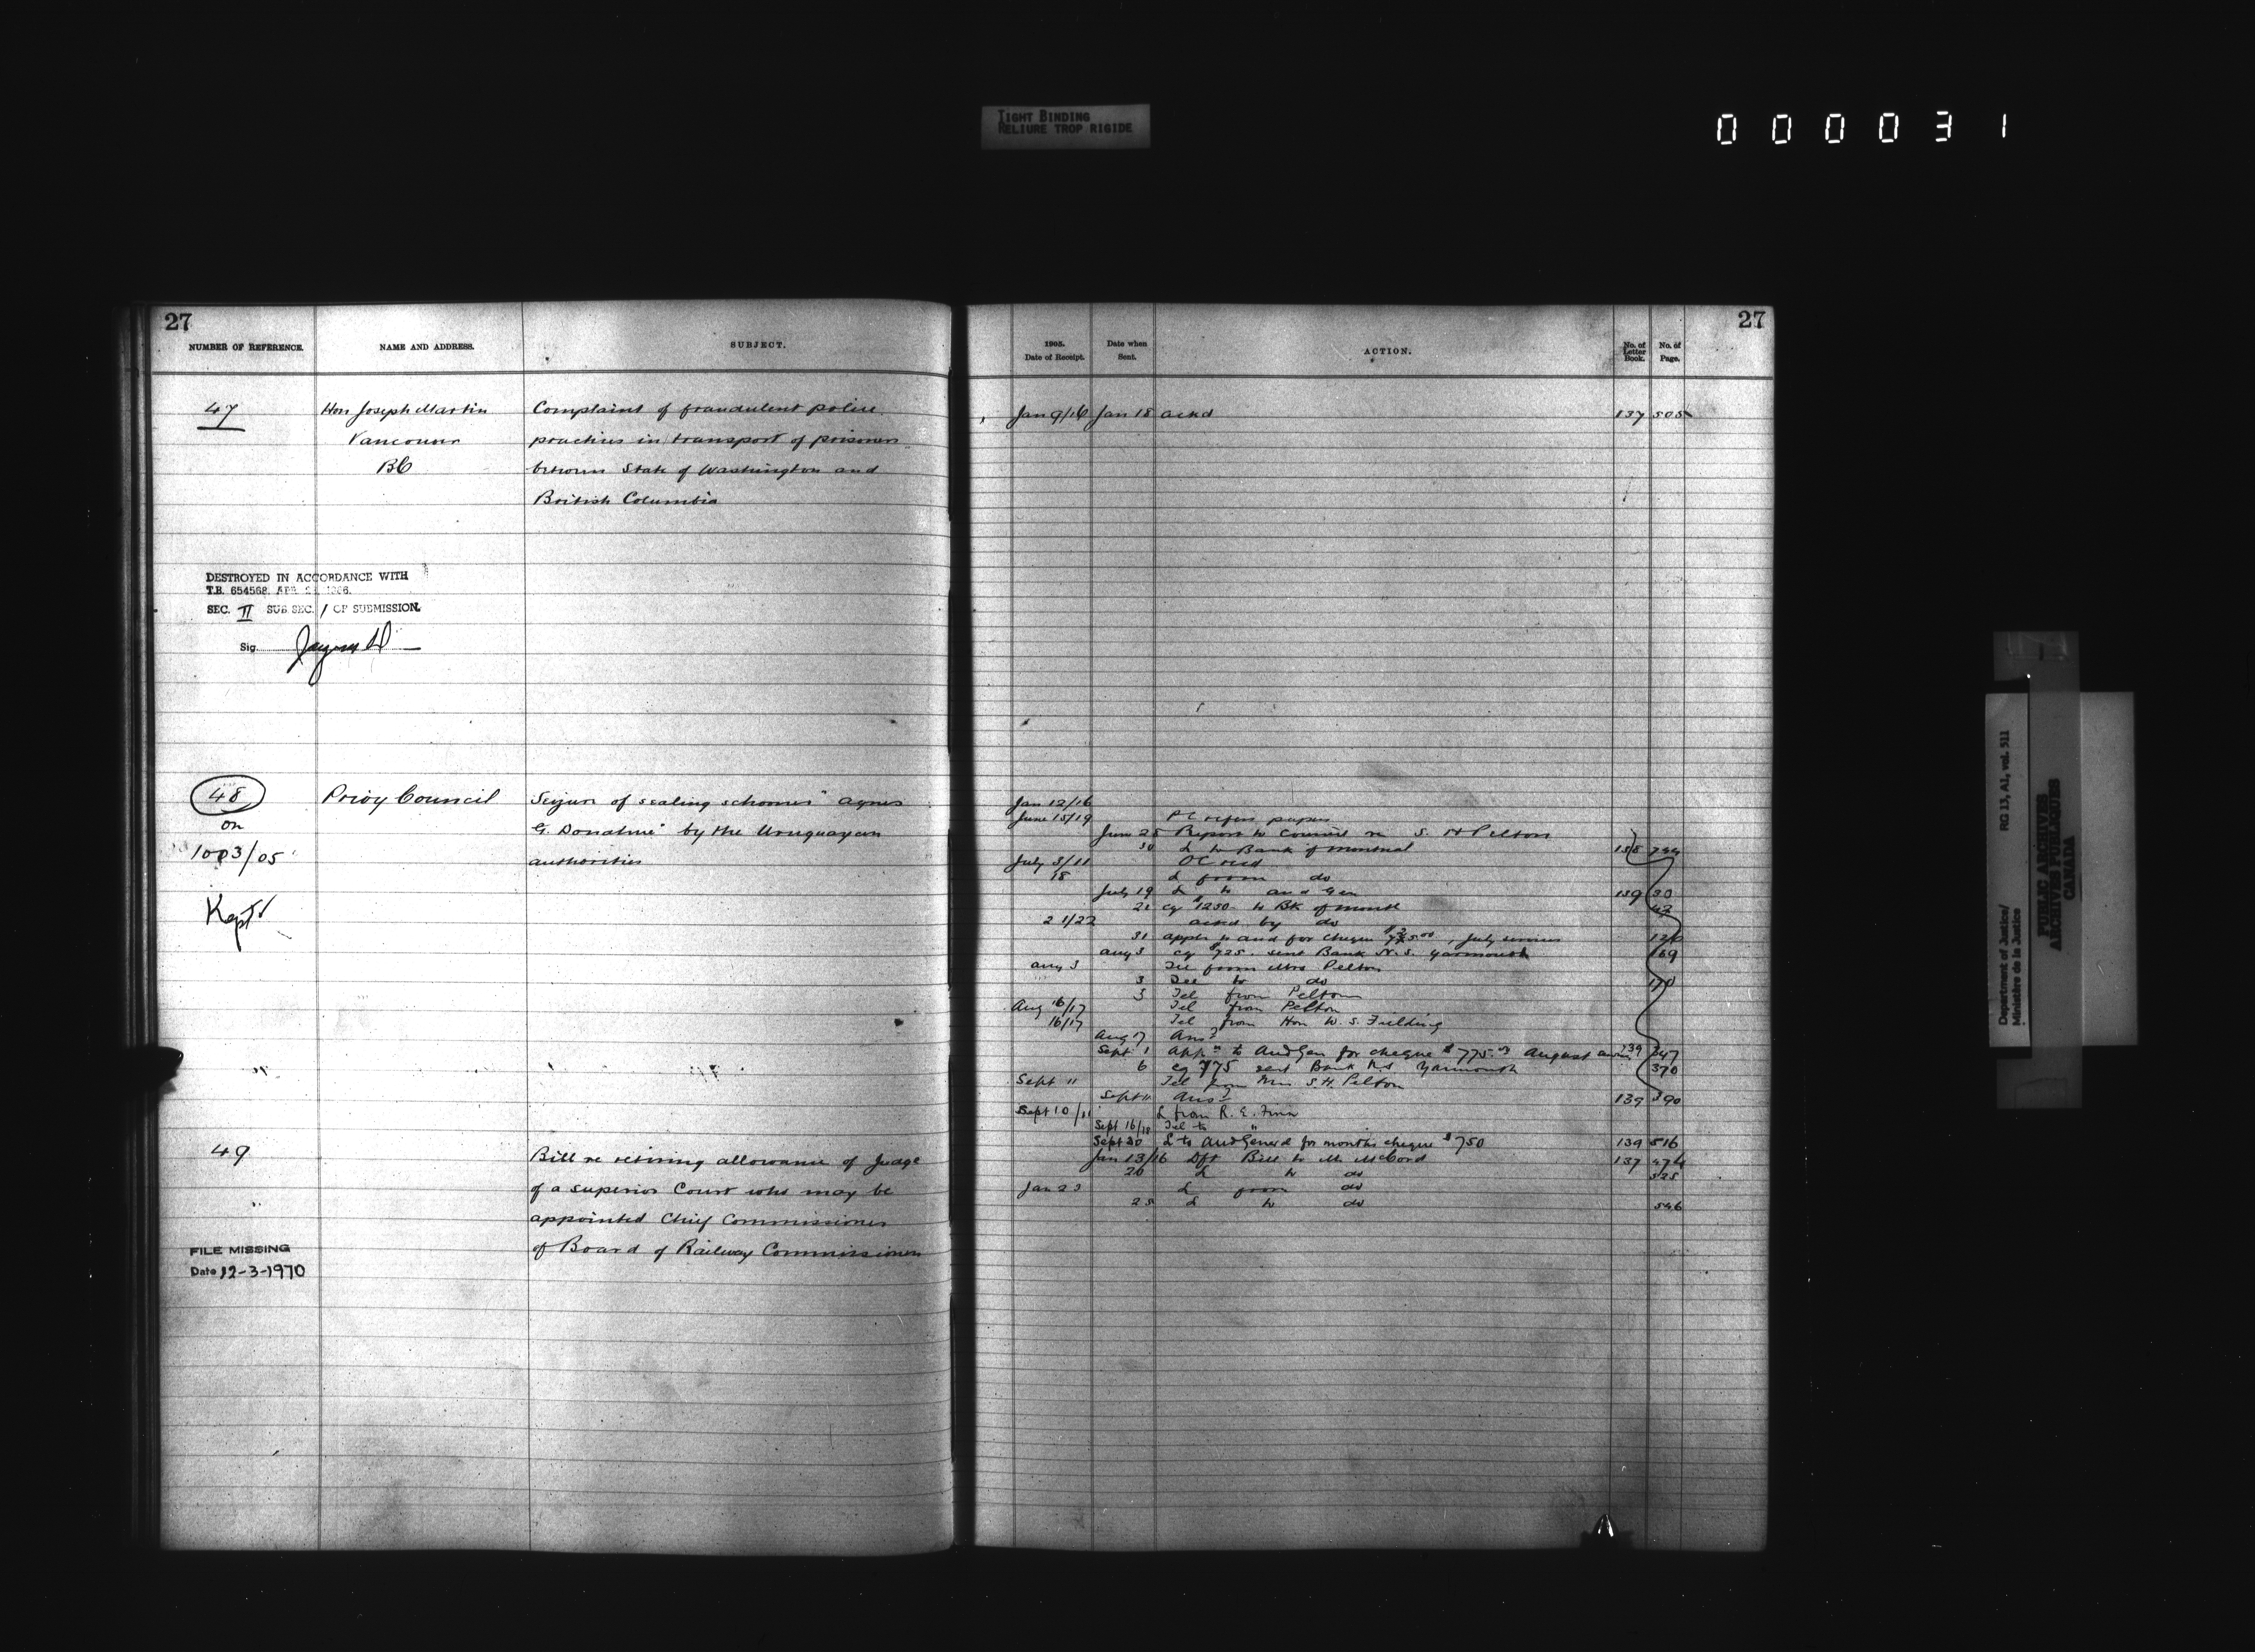 TIGHT BINDING
RELIURE TROP RIGIDE
000031
27
NUMBER OF REFERENCE.
NAME AND ADDRESS.
SUBJECT.
47
Hon Joseph Martin
Vancouver
BC
Complaint of fraudulent police
practices in transport of prisoners
between State of Washington and
British Columbia
DESTROYED IN ACCORDANCE WITH
T.B. 654568, APR. 1966.
SEC. II SUB SEC. 1 OF SUBMISSION.
Sig.
48
on
1003/05
Kept
Privy Council
Seizure of sealing schooner "Agnes
G. Donahue" by the Uruguayan
authorities
49
Bill re retiring allowance of Judge
of a superior Court who may be
appointed Chief Commissioner
of Board of Railway Commissioners
FILE MISSING
Date 12-3-1970
27
1905.
Date of Receipt.
Date when
Sent.
ACTION.
No. of
Letter
Book.
No. of
Page.
Jan 9/16 Jan 18 ackd 137 505
Jan 12/16
June 15/19 PC refers papers
June 28 Report to Council re S. H Pelton
30 L to Bank of Montreal 138 744
July 3/11 OC recd
18 L from do
July 19 L to Aud Gen 139 30
21 cq $1250 to Bk of Montl 42
21/22 ackd by do
31 appln to Aud for cheque , July services 126
Aug 3 cq $725. sent Bank N.S. Yarmouth 169
Aug 3 Tel from Mrs Pelton
3 Tel to do 170
3 Tel from Pelton
Aug 16/17 Tel from Pelton
16/17 Tel from Hon W. S. Fielding
Aug 17 Ansd
Sept 1 Appn to Aud Gen for cheque $775.00 August 139 347
6 cq $775 sent Bank N.S Yarmouth 370
Sept 11 Tel from Mrs S.H. Pelton
Sept 11 Ansd 139 390
Sept 10/11 L from R. E. Finn
Sept 16/18 Tel to "
Sept 30 L to Aud General for months cheque $750 139 516
Jan 13/16 Dft Bill to Mr McCord 137 474
20 L to do 525
Jan 23 L from do
25 L to do 546
Department of Justice/
Ministère de la Justice
RG 13, A1, vol. 511
PUBLIC ARCHIVES
ARCHIVES PUBLIQUES
CANADA